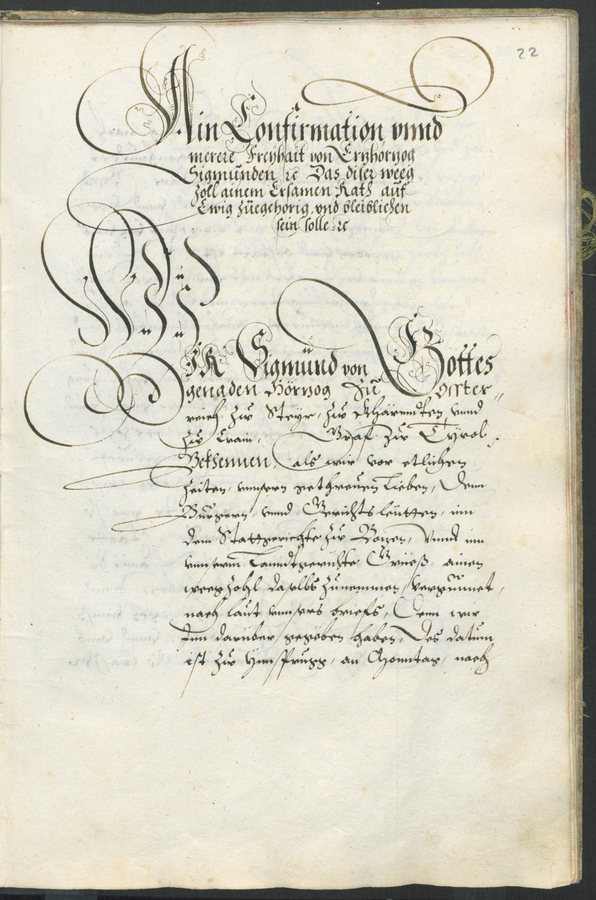 22
Ain Confirmation vnnd
merere Freyhait von Ertzhörtzog
Sigmunden ꝛc Das diser weeg
zoll ainem Ersamen Rath auf
Ewig zuegehörig, vnd bleiblichen
sein solle ꝛc
WIR Sigmund von Gottes
genaden Hörtzog Zu Osster,,
reich, Zu Steyr, Zu Khärnndten vnnd
Zu Crain, Graf Zu Tyrol ꝛc
Bekhennen, als wir vor etlichen
Zeiten, vnnsern getreuen Lieben, Denn
Burgern, vnnd Gerichts leutten, im
dem Stattgerichte zu Bozen, Vnnd im
vnnserm Lanndtgerichte Grieß, ainen
weegzohl daselbs zunemmen, vergunnet,
nach laut vnnsers briefs, Denn wir
Inn darüber gegeben haben, Des datum
ist zu Ynnsprugg, an Sonntag, nach